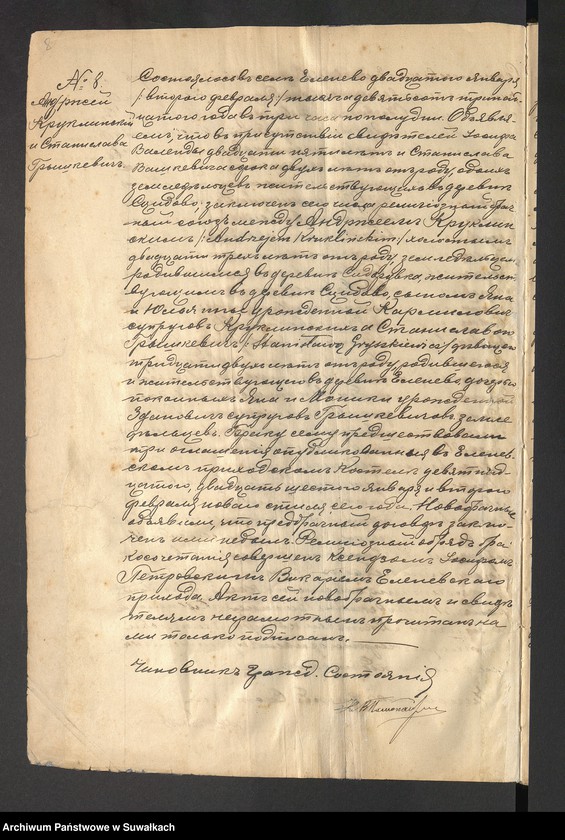 8
№ 8.
Андржей
Круклинский
и Станислава
Грышкевичъ.
Состоялось въ селѣ Еленево двадцатого Января
/:второго Февраля:/ тысяча девятьсотъ тринад-
цатого года въ три часа пополудни. Объявля-
емъ, что въ присутствіи свидѣтелей Іосифа
Валенды двадцати пяти лѣтъ и Станислава
Вашкевича сорока двухъ лѣтъ отъ роду, обоихъ
земледѣльцевъ жительствующихъ въ деревнѣ
заключенъ сего числа религіозный брач-
ный союзъ между Андржеемъ Круклин-
скимъ /:Andrzejem Kruklińskim:/ холостымъ
двадцати трехъ лѣтъ отъ роду, земледѣльцемъ
родившимся въ деревнѣ Сидоровка, жительст-
вующимъ въ деревнѣ сыномъ Яна
и урожденной Кармиловичъ
супруговъ Круклинскихъ и Станиславою
Грышкевичъ /:Stanisławą Gryszkiewicz:/ дѣвицею
тридцати двухъ лѣтъ отъ роду, родившеюся
и жительствующею въ деревнѣ Еленево, дочерью
покойныхъ Яна и Моники урожденной
супруговъ Грышкевичовъ земле-
дѣльцевъ. Браку сему предшествовали
три оглашенія опубликованныя въ Еленев-
скомъ приходскомъ костелѣ девятнад-
цатого, двадцать шестого Января и второго
Февраля новаго стиля сего года. Новобрачные
объявили, что предбрачный договоръ заклю-
ченъ ими небылъ. Религіозный обрядъ бра-
косочетанія совершенъ Ксендзомъ Іосифомъ
Петровскимъ Викаріемъ Еленевскаго
прихода. Актъ сей новобрачнымъ и свидѣ-
телямъ неграмотнымъ прочитанъ на-
ми только подписанъ.
Чиновникъ Гражд. Состоянія
Archiwum Państwowe w Suwałkach